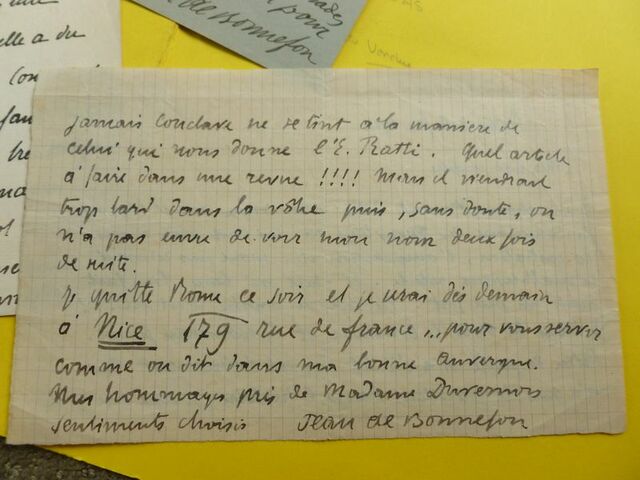 pour
de Bonnefon
elle a du
Vendu
jamais Conclave ne se tint à la manière de
celui qui nous donne l'E. Ratti. Quel article
à faire dans une revue !!!! Mais il viendrait
trop tard dans la vôtre puis, sans doute, on
n'a pas envie de voir mon nom deux fois
de suite.
je quitte Rome ce soir et je serai dès demain
à Nice 179 rue de france... pour vous servir
comme on dit dans ma bonne auvergne.
Mes hommages près de Madame Duvernois
sentiments choisis Jean de Bonnefon